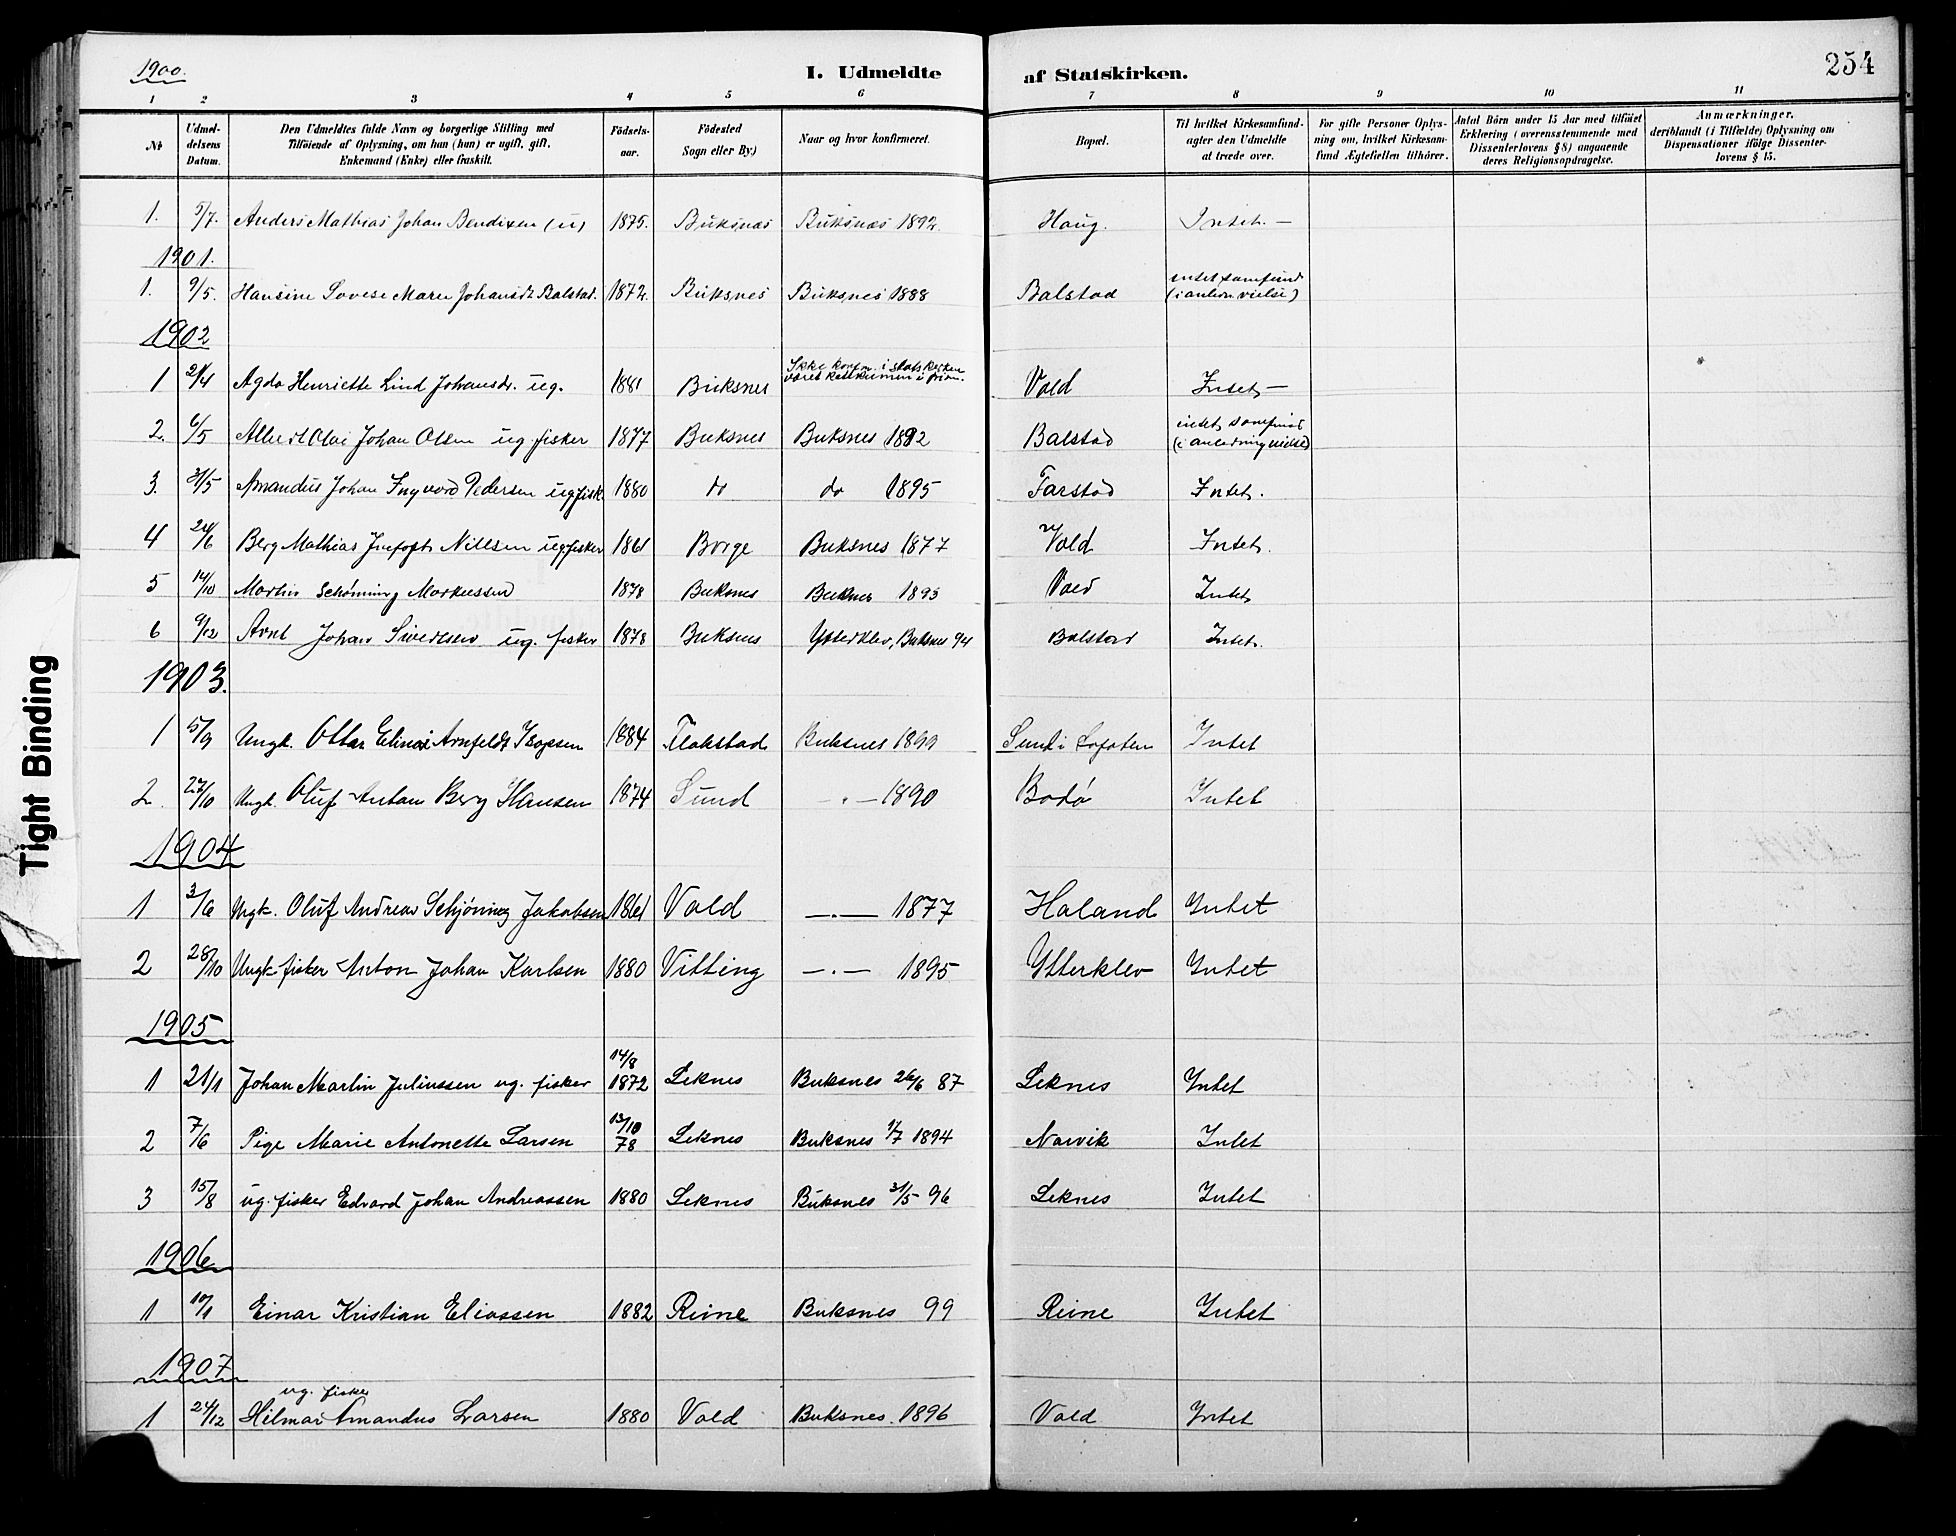 1900.
I. Udmeldte af Statskirken.
254
1 2 3 4 5 6 7 8 9 10 11
No
Udmeldelsens Datum.
Den Udmeldtes fulde Navn og borgerlige Stilling med Tilföiende af Oplysning, om han (hun) er ugift, gift, Enkemand (Enke) eller fraskilt.
Födselsaar.
Födested Sogn eller By.)
Naar og hvor konfirmeret.
Bopæl.
Til hvilket Kirkesamfund agter den Udmeldte at træde over.
For gifte Personer Oplysning om, hvilket Kirkesamfund Ægtefællen tilhörer.
Antal Börn under 15 Aar med tilföiet Erklæring (overensstemmende med Dissenterlovens § 8) angaaende deres Religionsopdragelse.
Anmærkninger, deriblandt (i Tilfælde) Oplysning om Dispensationer ifölge Dissenterlovens § 15.
1. 5/7. Anders Mathias Johan Bendixen (u) 1875. Buksnæs Buksnæs 1892. Haug. Intet. —
1901.
1. 9/5. Hansine Lovese Maren Johansdt. Balstad. 1872. Buksnes Buksnes 1888 Balstad intet samfund
1902
1 21/4 Agda Henriette Lind Johansdr. ug. 1881 Buksnes Ikke konfm. i statskirken Vold Intet —
2. 6/5 Albert Olai Johan Olsen ug. fisker 1877 Buksnes Buksnes 1892 Balstad intet samfund (i anledning vielse)
3. 31/5 Amandus Johan Ingvard Pedersen ug fisk. 1880 do do 1895 Farstad Intet.
4 24/6 Berg Mathias Nilsen ug fisker 1861 Borge Buksnes 1877 Vold Intet.
5 14/10 Martin Schønning Markussen 1878 Buksnes Buksnes 1893 Vold Intet
6 9/12 Arnt Johan Sivertsen ug. fisker 1878 Buksnes Ytterklev, Buksnes 94 Balstad Intet.
1903.
1 5/9 Ungk. Ottar Elinæs Arnfeldt Isaksen 1884 Flakstad Buksnes 1899 Sund i Lofoten Intet
2. 27/10 Ungk. Oluf Anton Berg Hansen 1874 Sund —"— 1890 Bodø Intet
1904
1 3/6 Ungk. Oluf Andreas Schjøning Jakobsen 1861 Vold —"— 1877 Haland Intet
2 28/10 Ungk. fisker Anton Johan Karlsen 1880 Vitting —"— 1895 Ytterklev Intet
1905
1 21/1 Johan Martin Juliussen ug. fisker 14/8 1872 Leknes Buksnes 26/6 87 Leknes Intet
2 7/6 Pige Marie Antonette Larsen 13/10 78 Leknes Buksnes 1/7 1894 Narvik Intet
3 15/8 ug. fisker Edvard Johan Andreassen 1880 Leknes Buksnes 31/5 96 Leknes Intet
1906
1 10/1 Einar Kristian Eliassen 1882 Reine Buksnes 99 Reine Intet
1907
ug. fisker
1 24/12 Hilmar Amandus Larsen 1880 Vold Buksnes. 1896 Vold Intet
Tight Binding